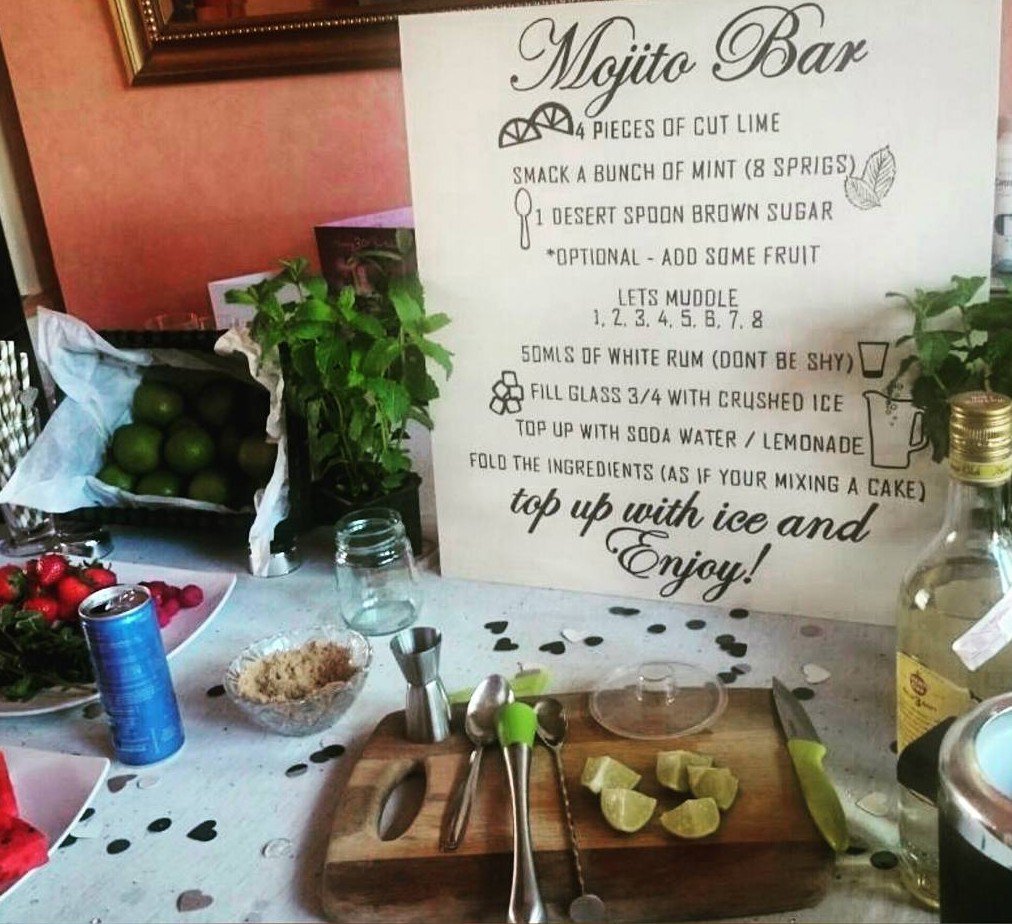 Mojito Bar
4 PIECES OF CUT LIME
SMACK A BUNCH OF MINT (8 SPRIGS)
1 DESERT SPOON BROWN SUGAR
*OPTIONAL - ADD SOME FRUIT
LETS MUDDLE
1, 2, 3, 4, 5, 6, 7, 8
50MLS OF WHITE RUM (DONT BE SHY)
FILL GLASS 3/4 WITH CRUSHED ICE
TOP UP WITH SODA WATER / LEMONADE
FOLD THE INGREDIENTS (AS IF YOUR MIXING A CAKE)
top up with ice and
Enjoy!